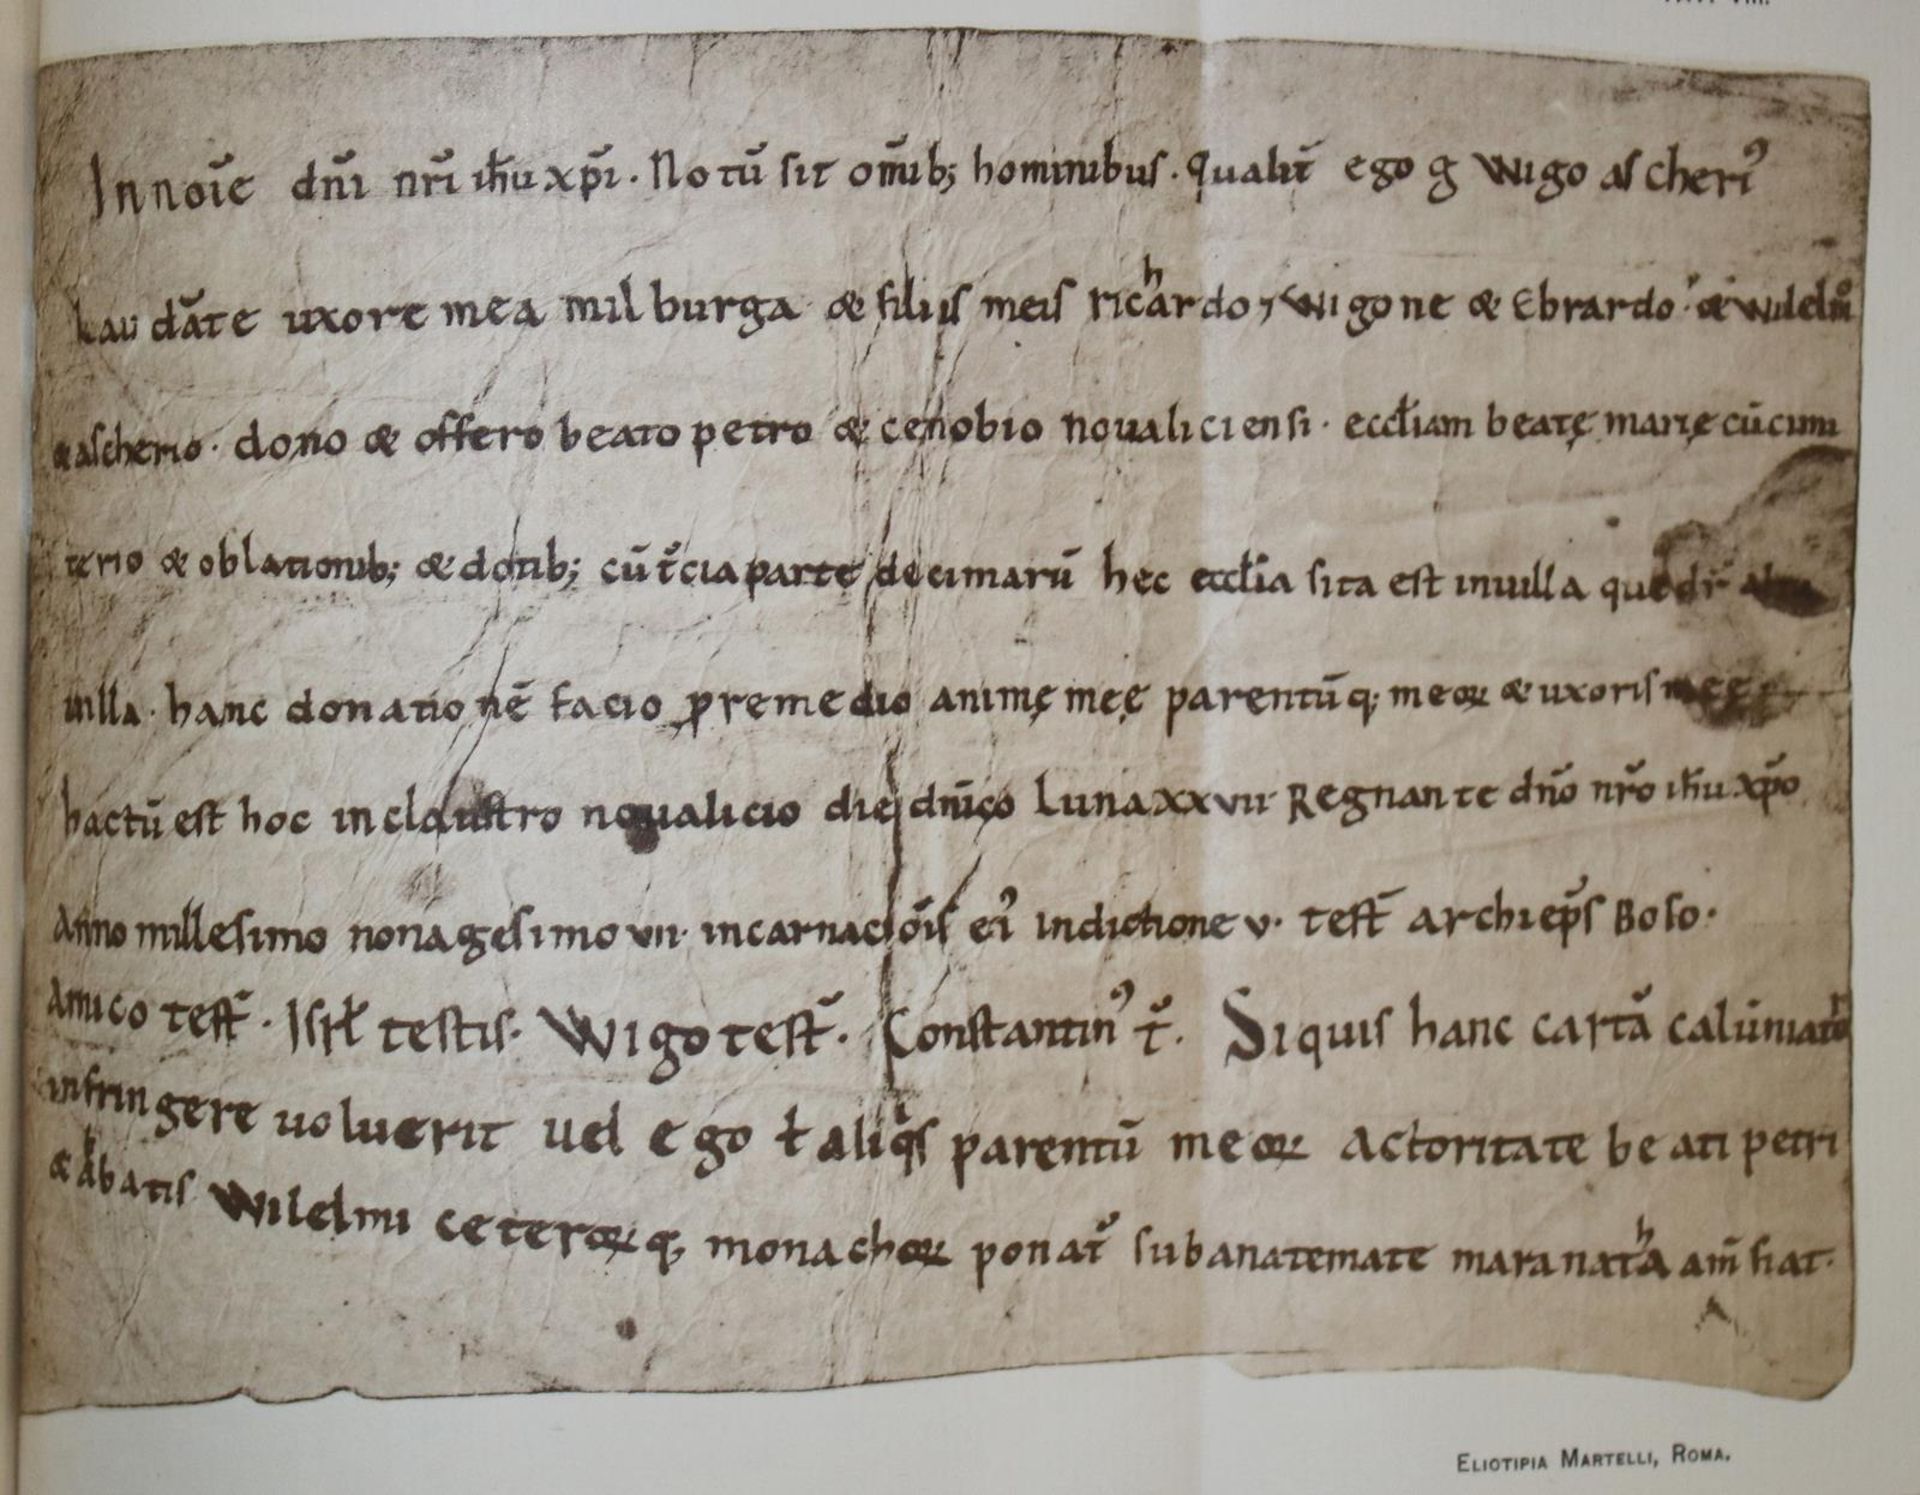 In noīe dn̄i nr̄i ih̄u xp̄i. Notū sit om̄ib; hominibus. Qualit̄ ego g Wigo ascheri᾽
Laudāte uxore mea milburga & filiis meis richardo ⁊ Wigone & Ebrardo & Wilelmo
& ascherio. dono & offero beato petro & cenobio noualiciensi. eccl̄iam beatę marię cū cimi
terio & oblationib; & dotib; cū t̄cia parte decimarū hec eccl̄ia sita est in uilla que dr̄
uilla. hanc donationē facio ꝓ remedio animę meę parentūq; meoꝝ & uxoris meę
hactū est hoc in claustro noualicio die dn̄ico Luna xxvii. Regnante dn̄o nr̄o ih̄u xp̄o
Anno millesimo nonagesimo vii. incarnaciōis ei᾽ indictione v. test̄ archiep̄s Boso.
Amico test̄. Isrł testis. Wigo test̄. Constantin᾽ t̄. Siquis hanc cartā calūniator
infringere uoluerit uel ego ł aliqis parentū meoꝝ actoritate beati petri
& abbatis Wilelmi ceteroꝝq; monachoꝝ ponat᷑ sub anatemate maranatha am̄ fiat.
Eliotipia Martelli, Roma.